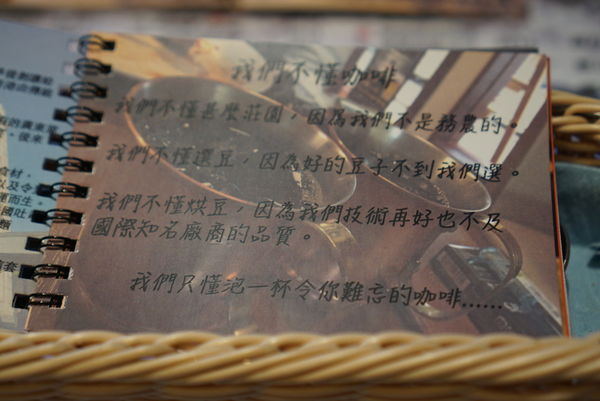 我們不懂咖啡
我們不懂甚麼莊園，因為我們不是務農的。
我們不懂選豆，因為好的豆子不到我們選。
我們不懂烘豆，因為我們技術再好也不及
國際知名廠商的品質。
我們只懂泡一杯令你難忘的咖啡......